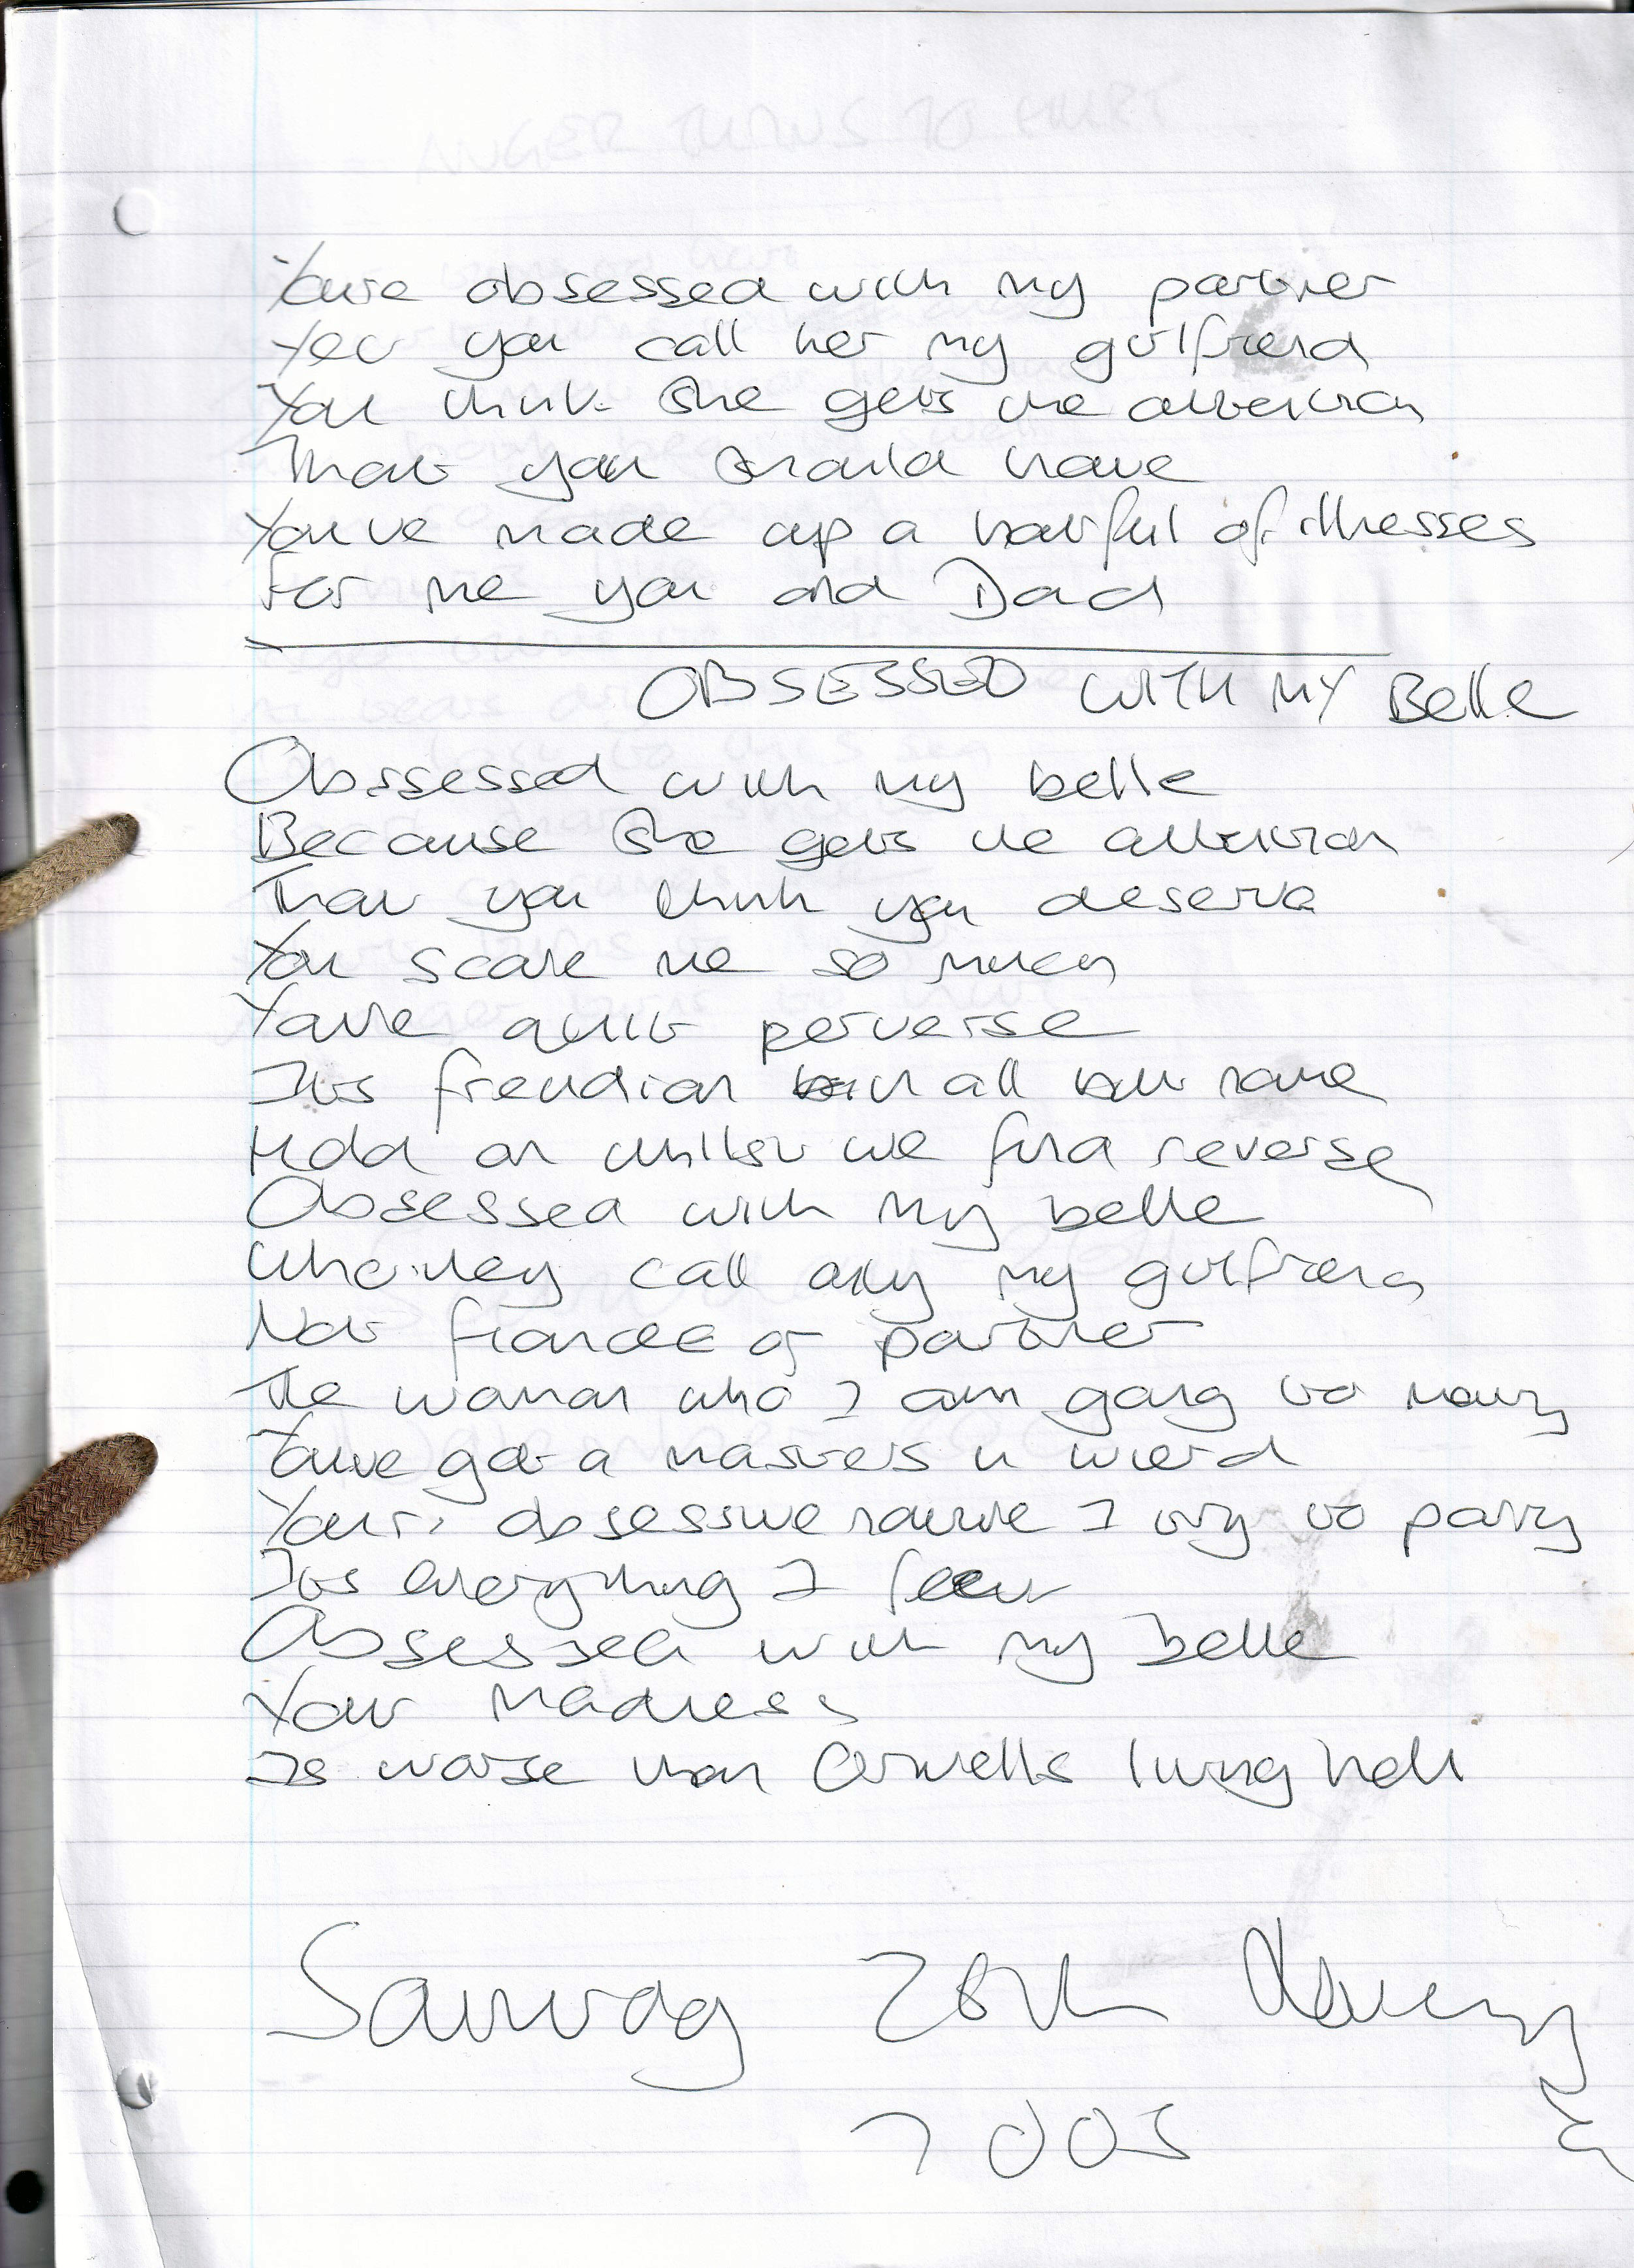 You're obsessed with my partner
Yet you call her my girlfriend
You think she gets the attention
That you should have
You've made up a hatful of illnesses
For me you and Dad
OBSESSED WITH MY Belle
Obssessed with my belle
Because she gets the attention
That you think you deserve
You scare me so much
You're quite perverse
Its freudian in all but name
Hold on whilst we find reverse
Obsessed with my belle
Who they call only my girlfriend
Not fiancee or partner
The woman who I am going to marry
You've got a masters in wierd
Your obsessive nature I try to parry
Its everything I feear
Obsessed with my belle
Your madness
Is worse than Orwells living hell
Saturday 28th
2005